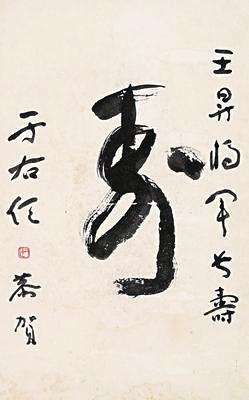 王昇將軍長壽
壽
于右任
恭賀